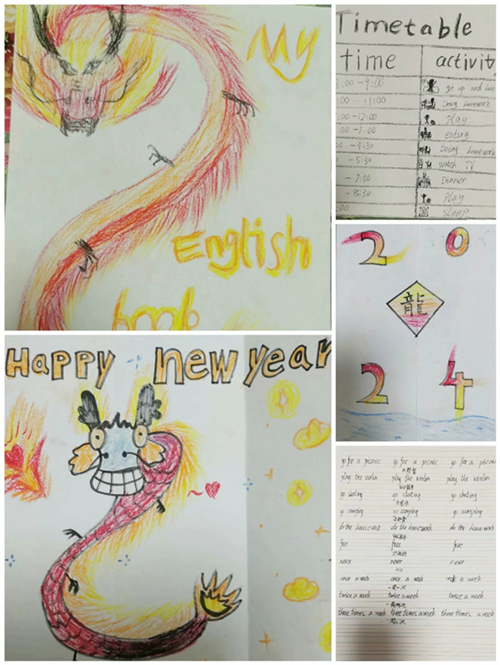 My
English
book
Timetable
time activit
:00-9:00 get up and have
:00-11:00 doing homework
:00-12:00 play
:00-1:00 eating
-4:30 doing homework
-5:30 watch TV
-7:30 dinner
-8:30 play
:00 sleep
2 0
龍
2 4
Happy new year
go for a picnic go for a picnic go for a picnic
play the violin play the violin play the violin
go skating go skating go skating
go camping go camping go camping
do the housework do the housework do the housework
free free free
never never never
once a week once a week once a week
twice a week twice a week twice a week
three times a week three times a week three times a week